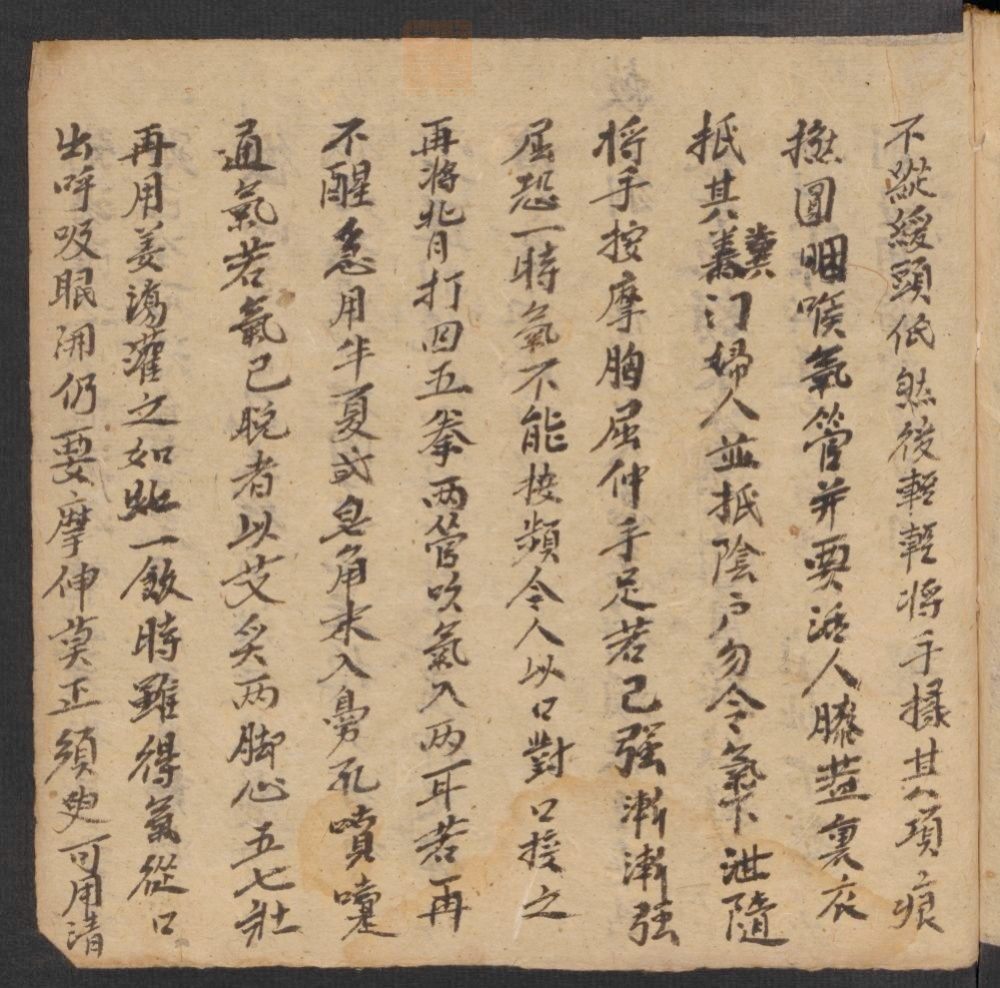 不蹤緩頭低然後輕輕將手揉其項痕
撚圓咽喉氣管并要活人膝蓋裏衣
抵其糞門婦人並抵陰户勿令氣下泄隨
将手按摩胸屈伸手足若已强漸漸强
屈恐一時氣不能接頻令人以口對口接之
再将背打四五拳両管吹氣入両耳若再
不醒急用半夏或皂角末入鼻孔噴嚏
通氣若氣已脱者以艾炙两脚心五七壯
再用姜湯灌之如此一飯時雖得氣從口
出呼吸眼開仍要摩伸莫止須臾可用清